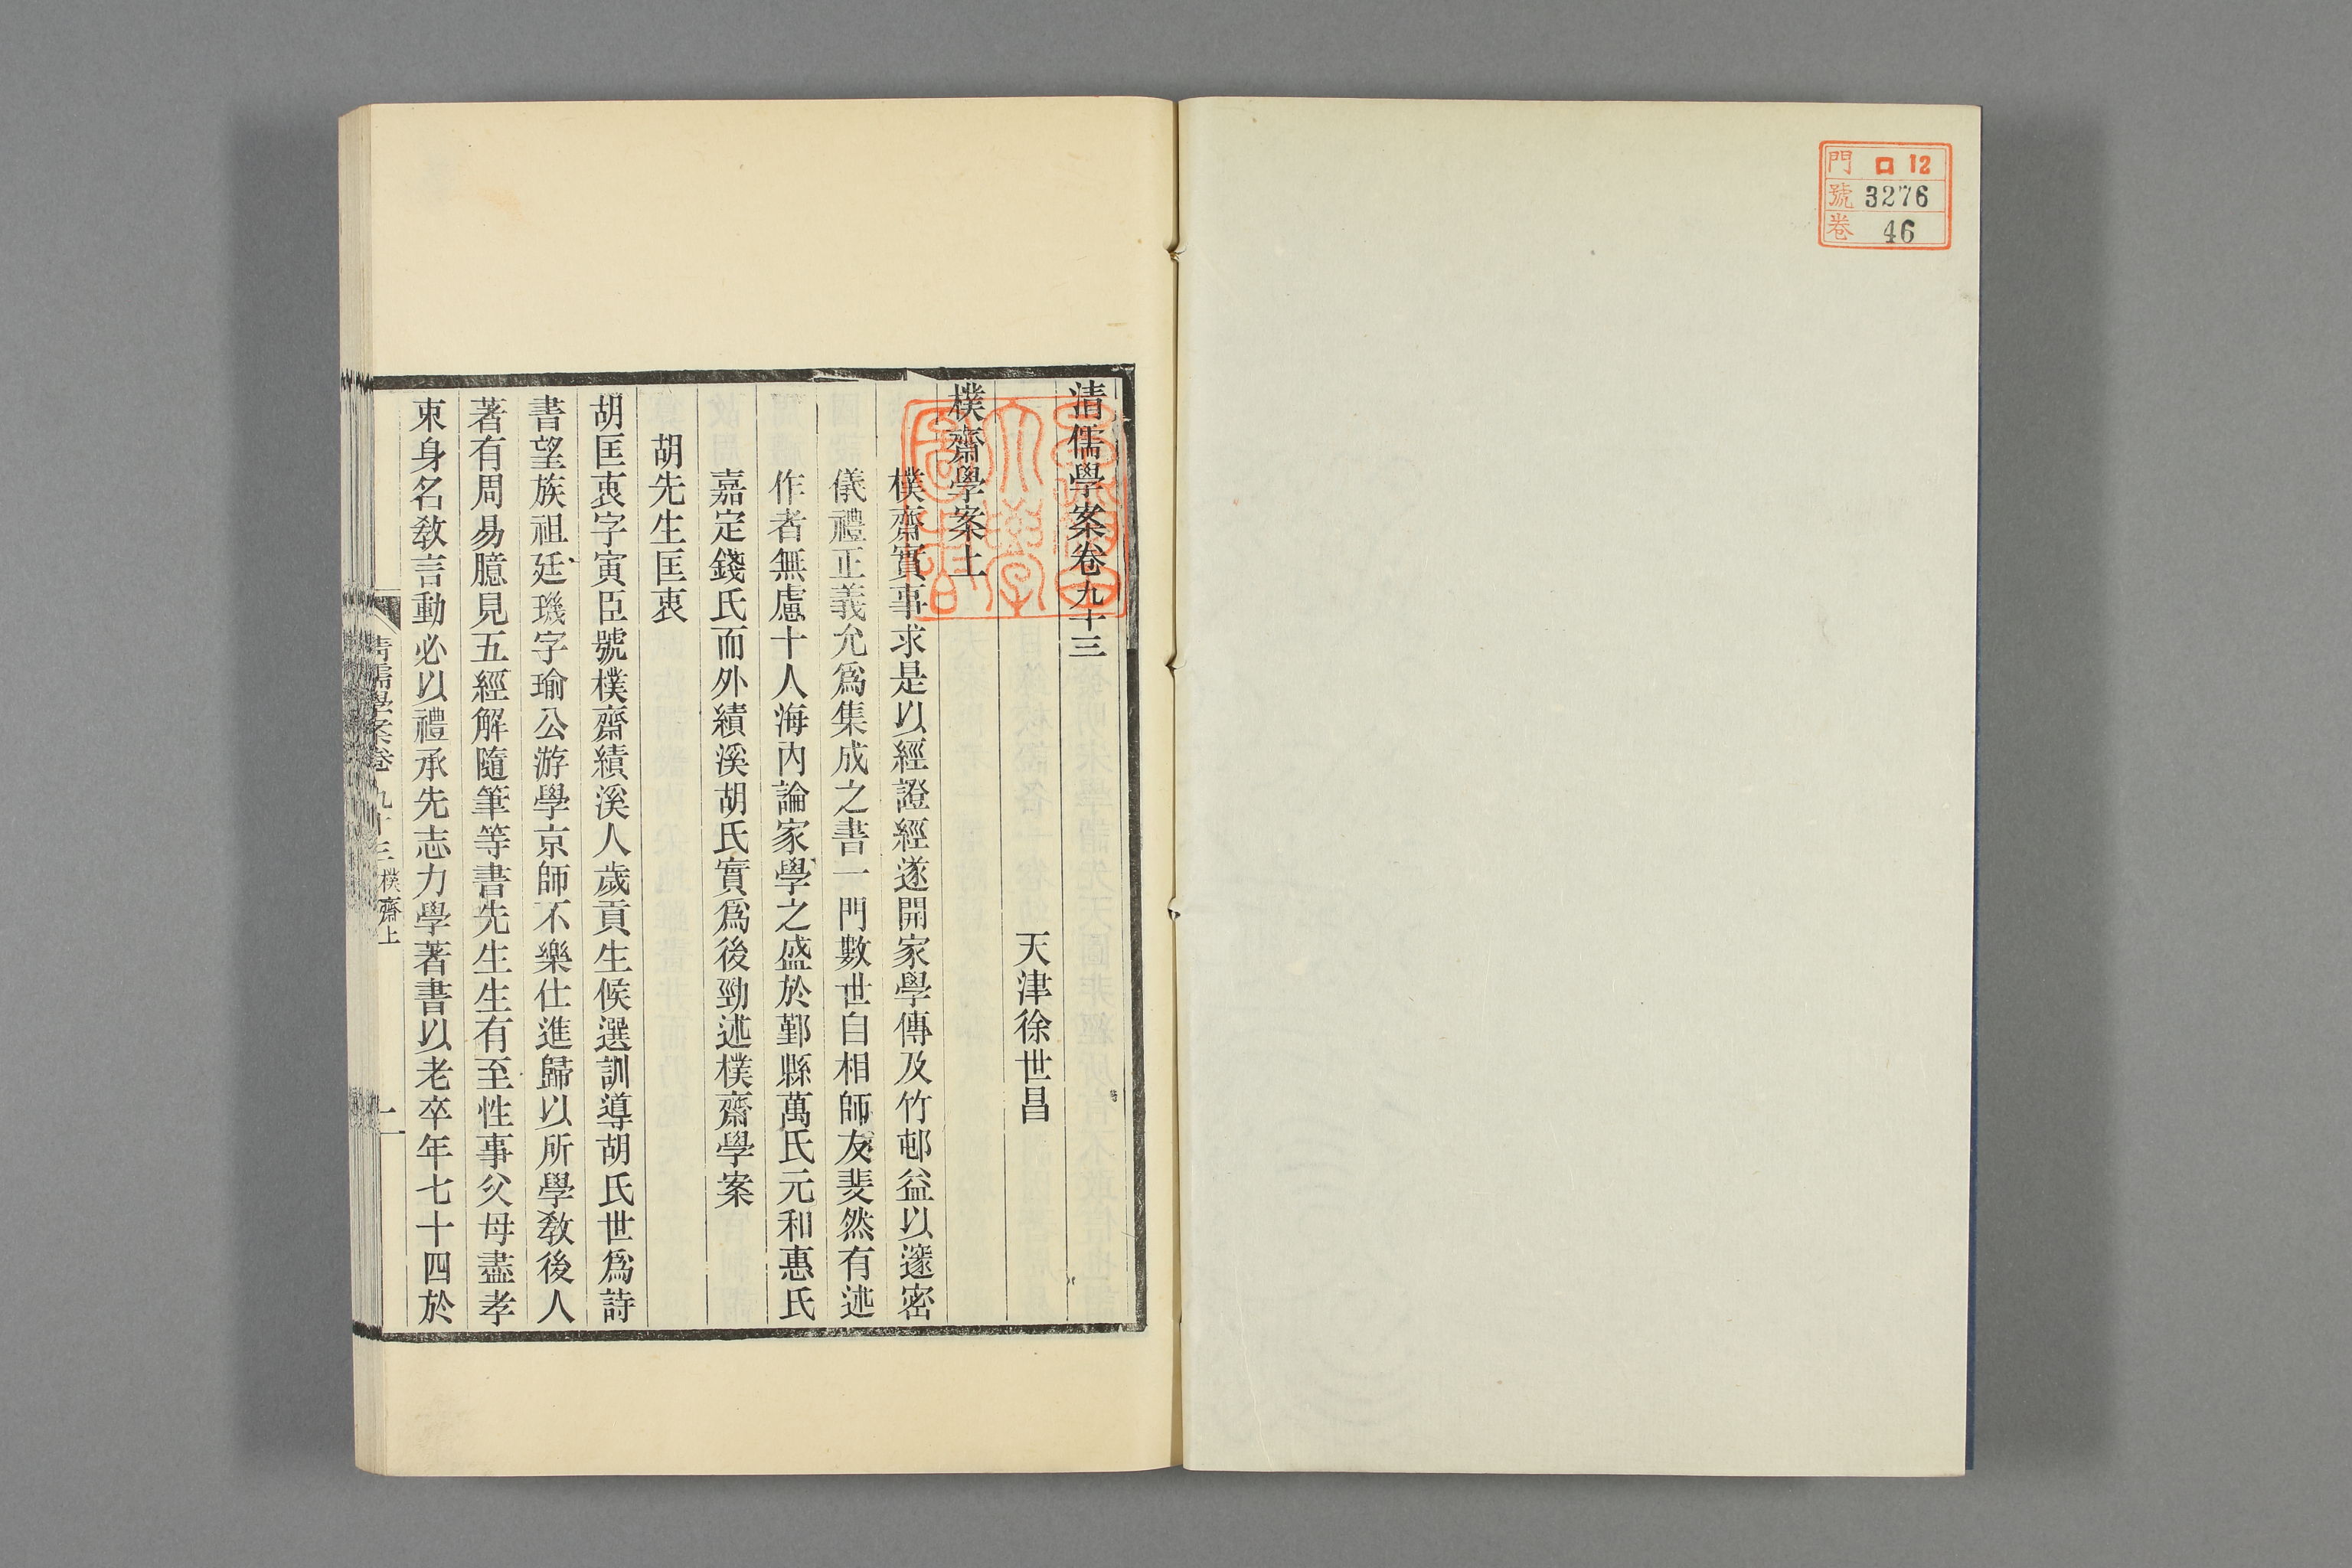 門 ロ 12
號 3276
卷 46
清儒學案卷九十三
天津徐世昌
樸齋學案上
樸齋實事求是以經證經遂開家學傳及竹邨益以邃密
儀禮正義允爲集成之書一門數世自相師友斐然有述
作者無慮十人海內論家學之盛於鄞縣萬氏元和惠氏
嘉定錢氏而外績溪胡氏實爲後勁述樸齋學案
胡先生匡衷
胡匡衷字寅臣號樸齋績溪人歲貢生候選訓導胡氏世爲詩
書望族祖廷璣字瑜公游學京師不樂仕進歸以所學敎後人
著有周易臆見五經解隨筆等書先生生有至性事父母盡孝
束身名敎言動必以禮承先志力學著書以老卒年七十四於
清儒學案卷九十三 樸齋上 一